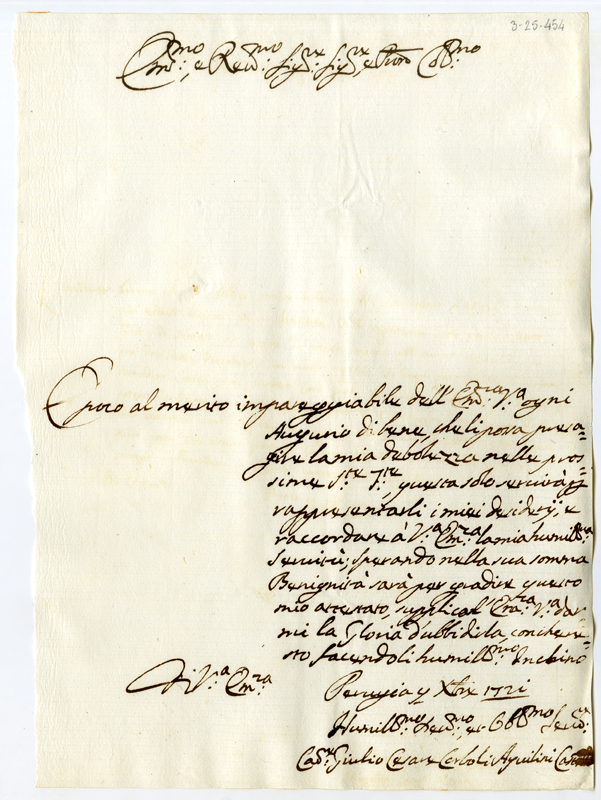 3-25-454
Em.mo, e Rev.mo Sig.re Sig.re, e Pron Col.mo
E' poco al merito impareggiabile dell'Em.za V.a ogni
Augurio di bene, che li possa presa=
gire la mia debolezza nelle pros=
sime S.te F.te, questa solo servirà p
rappresentarli i miei desiderij, e
raccordare à V.a Em.za la mia humil.ma
servitù; sperando nella sua somma
Benignità sarà per gradire questo
mio attestato, supplico l'Em.za V.a dar=
mi la Gloria d'ubbidirla, con che re=
sto facendoli humill.mo Inchino
Di V.a Em.za
Perugia 9 Xbre 1721
Humill.mo Dev.mo, et Obb.mo Serv.re
Giulio Cesare Cerboli Aquilini